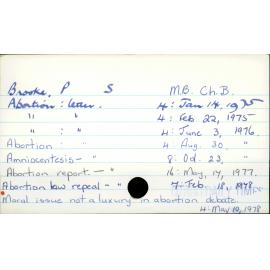 Brooke, P S M.B. Ch.B.
Abortion : letter. 4: Jan 14, 1975
" " 4: Feb 22, 1975
" : " 4: June 3, 1976.
Abortion : " 4: Aug. 30, "
Amniocentesis - " 8: Oct. 22, "
Abortion report - " 16: May, 14, 1977.
Abortion law repeal - " 7: Feb 18, 1978
Moral issue not a luxury in abortion debate.
4: May 10, 1978